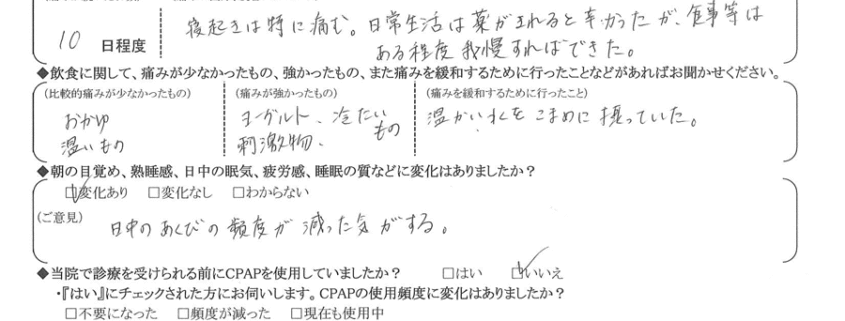 10 日程度
寝起きは特に痛む。日常生活は薬がきれると辛かったが、食事等は
ある程度我慢すればできた。
◆飲食に関して、痛みが少なかったもの、強かったもの、また痛みを緩和するために行ったことなどがあればお聞かせください。
(比較的痛みが少なかったもの) (痛みが強かったもの) (痛みを緩和するために行ったこと)
おかゆ ヨーグルト、冷たいもの 温かい水をこまめに摂っていた。
温いもの 刺激物、
◆朝の目覚め、熟睡感、日中の眠気、疲労感、睡眠の質などに変化はありましたか?
☑変化あり □変化なし □わからない
(ご意見) 日中のあくびの頻度が減った気がする。
◆当院で診療を受けられる前にCPAPを使用していましたか? □はい ☑いいえ
・『はい』にチェックされた方にお伺いします。CPAPの使用頻度に変化はありましたか?
□不要になった □頻度が減った □現在も使用中